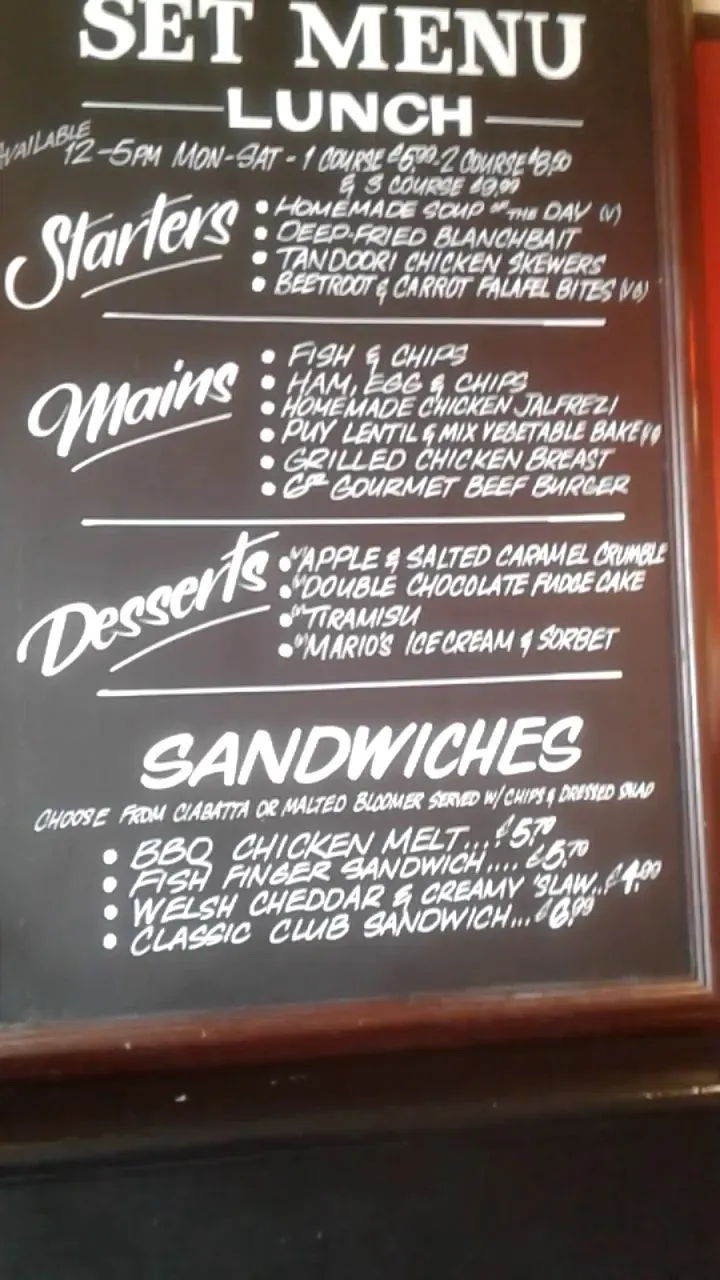 SET MENU
LUNCH
AVAILABLE
12-5PM MON-SAT - 1 COURSE £5.99 - 2 COURSE £8.50
& 3 COURSE £9.99
Starters
• HOMEMADE SOUP OF THE DAY (V)
• DEEP-FRIED BLANCHBAIT
• TANDOORI CHICKEN SKEWERS
• BEETROOT & CARROT FALAFEL BITES
Mains
• FISH & CHIPS
• HAM, EGG & CHIPS
• HOMEMADE CHICKEN JALFREZI
• PUY LENTIL & MIX VEGETABLE BAKE
• GRILLED CHICKEN BREAST
• 6oz GOURMET BEEF BURGER
Desserts
• (V) APPLE & SALTED CARAMEL CRUMBLE
• (V) DOUBLE CHOCOLATE FUDGE CAKE
• (V) TIRAMISU
• (V) MARIO'S ICE CREAM & SORBET
SANDWICHES
CHOOSE FROM CIABATTA OR MALTED BLOOMER SERVED W/ CHIPS & DRESSED SALAD
• BBQ CHICKEN MELT... £5.70
• FISH FINGER SANDWICH.... £5.70
• WELSH CHEDDAR & CREAMY 'SLAW..
• CLASSIC CLUB SANDWICH... £6.99